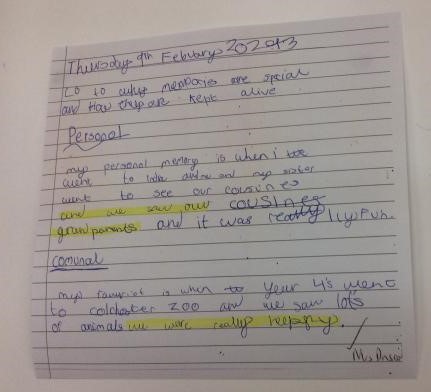 Thursday 9th Febuary 2023
LO to why memories are special
and How they are kept alive
Personal
my personal memory is when i
went to India and my sister
went to see our cousines
and we saw our cousines
grandparents and it was really fun.
comunal
my favuriot is when to Year 4's went
to colchester zoo and we saw lots
of animals we were really happy.